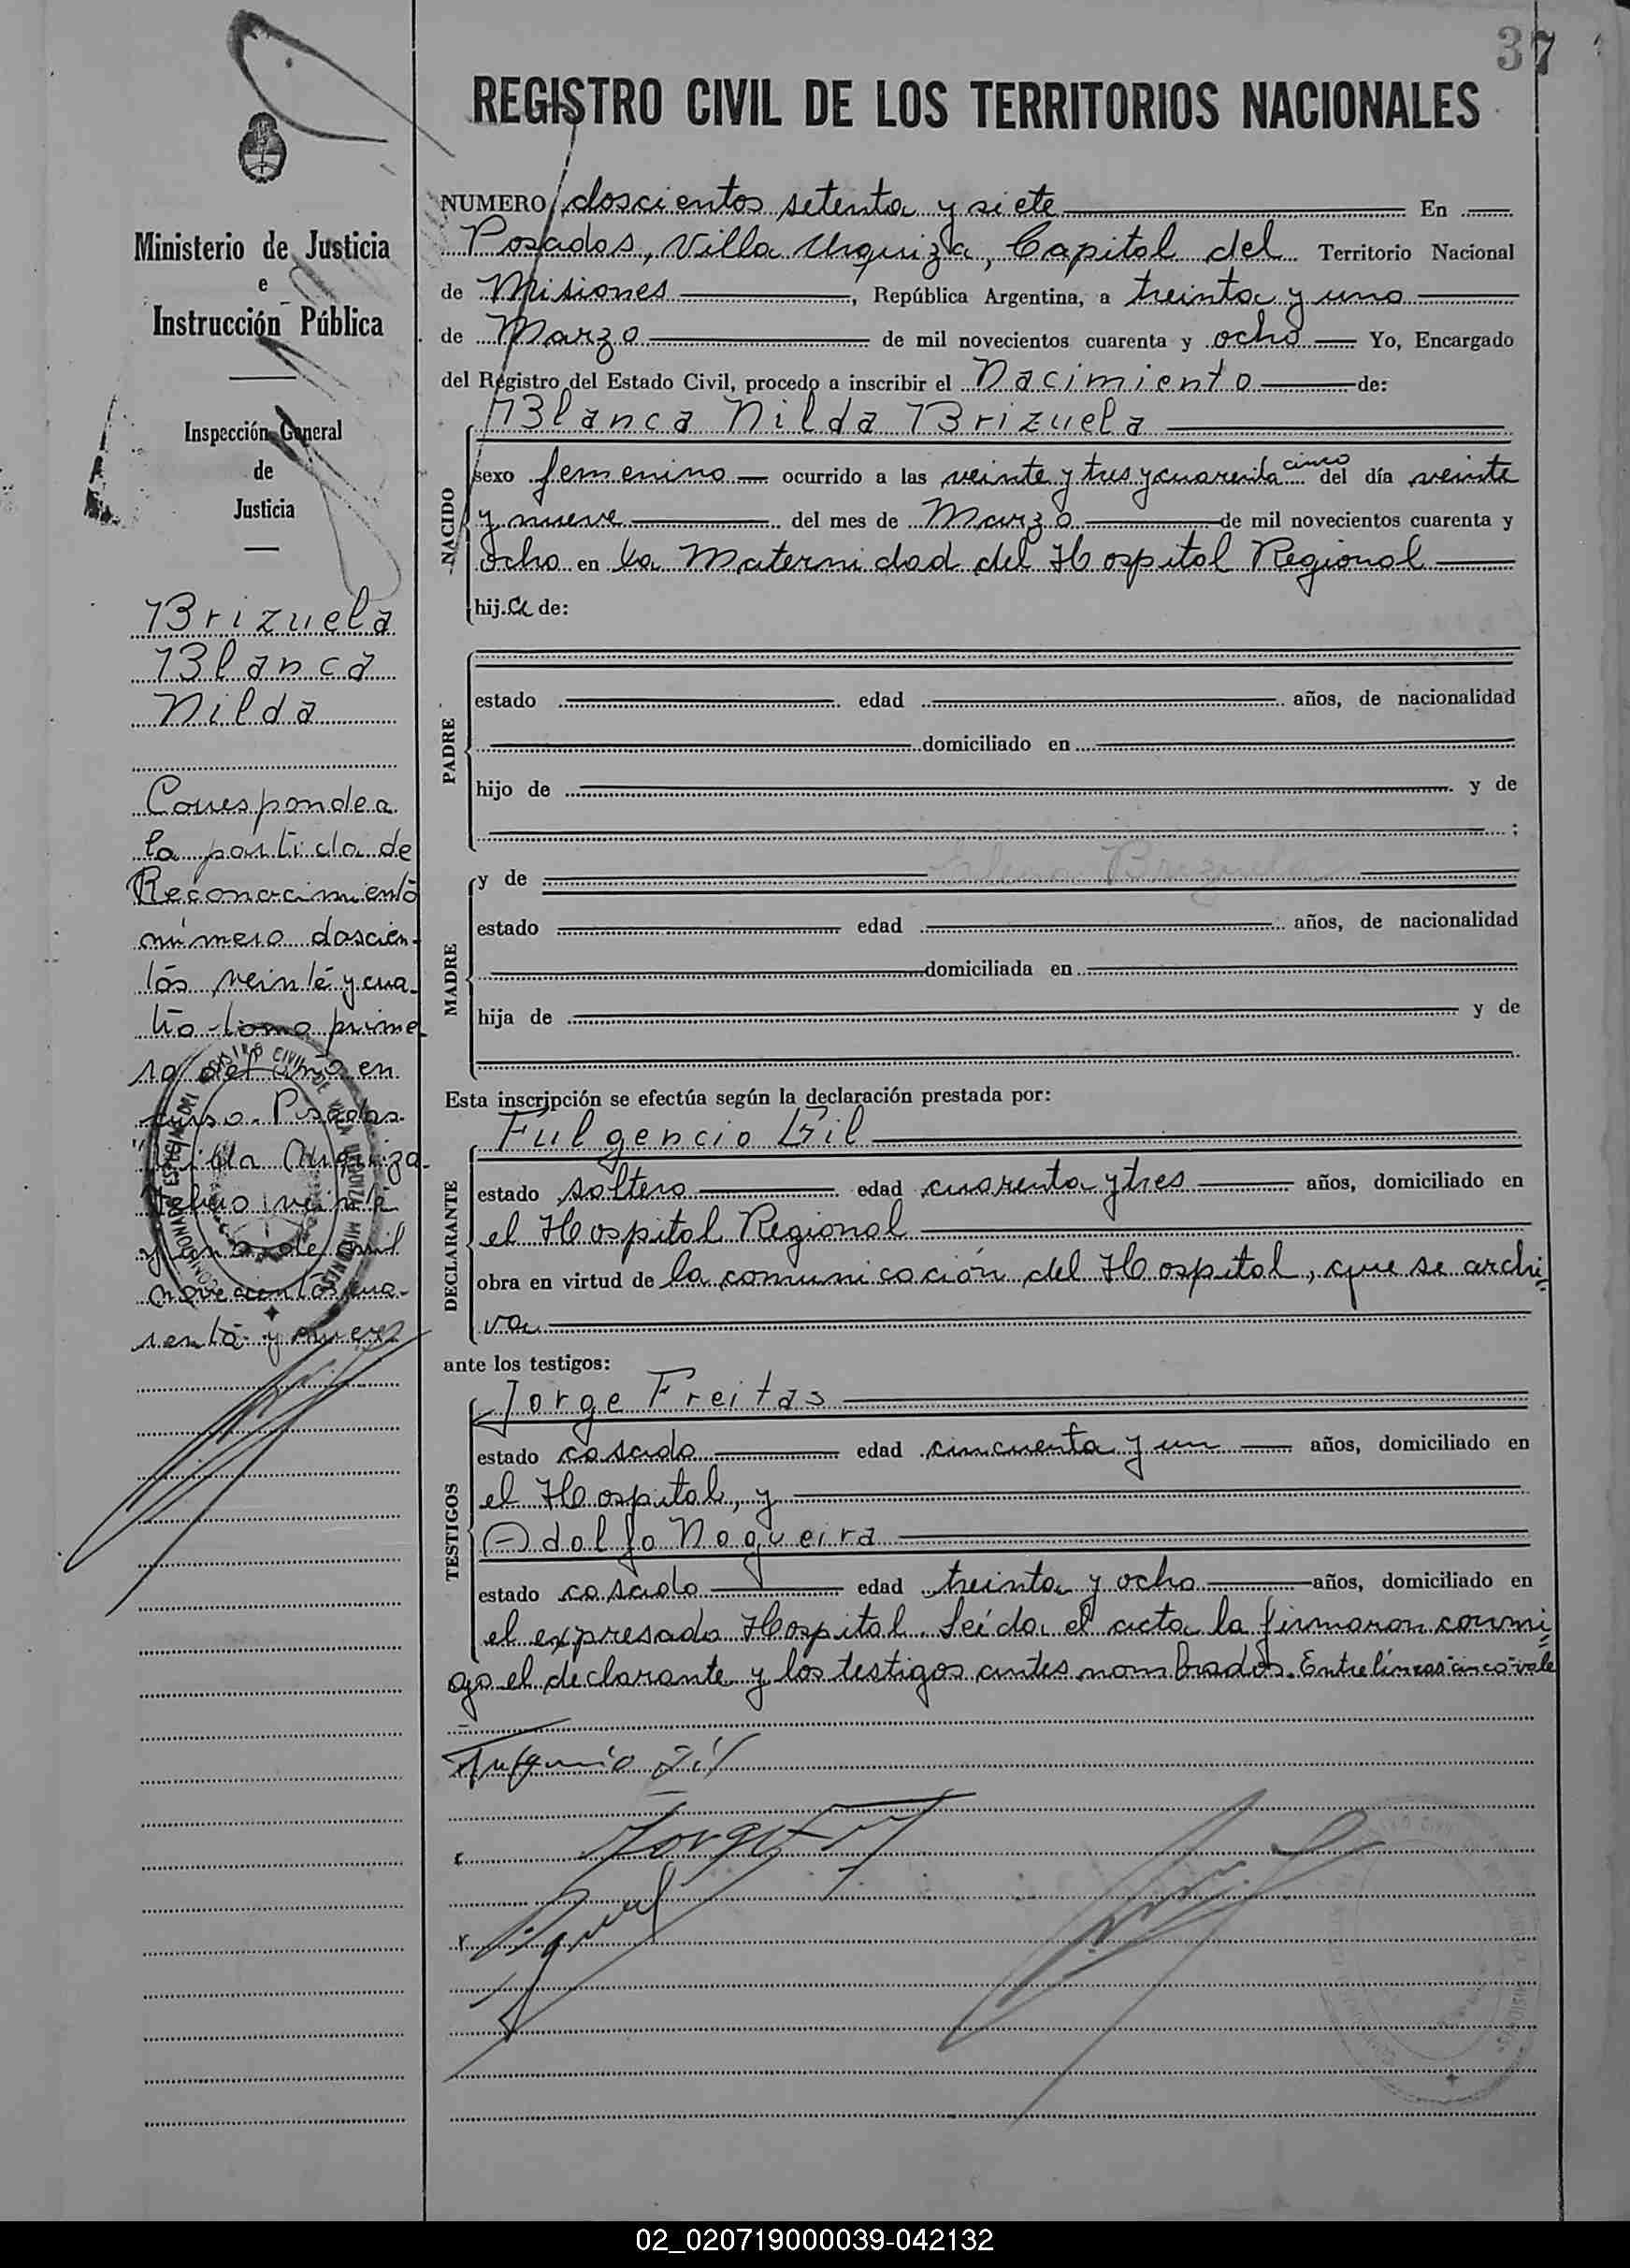 37
REGISTRO CIVIL DE LOS TERRITORIOS NACIONALES
Ministerio de Justicia
e
Instrucción Pública
Inspección General
de
Justicia
Brizuela
Blanca
Nilda
Corresponde a
la partida de
Reconocimiento
número doscien-
tos veinte y cua-
tro tomo prime
ro del año en
curso. Posadas
"Villa Urquiza
febrero veinte
y uno de mil
novecientos cua-
renta y nueve
NUMERO doscientos setenta y siete En
Posadas, Villa Urquiza, Capital del Territorio Nacional
de Misiones, República Argentina, a treinta y uno
de Marzo de mil novecientos cuarenta y ocho Yo, Encargado
del Registro del Estado Civil, procedo a inscribir el Nacimiento de:
Blanca Nilda Brizuela
NACIDO
sexo femenino ocurrido a las veinte y tres y cuarenta cinco del día veinte
y nueve del mes de Marzo de mil novecientos cuarenta y
ocho en la Maternidad del Hospital Regional
hija de:
PADRE
estado edad años, de nacionalidad
domiciliado en
hijo de y de
;
MADRE
y de Brizuela
estado edad años, de nacionalidad
domiciliada en
hija de y de
Esta inscripción se efectúa según la declaración prestada por:
DECLARANTE
Fulgencio Gil
estado soltero edad cuarenta y tres años, domiciliado en
el Hospital Regional
obra en virtud de la comunicación del Hospital, que se archi=
va
ante los testigos:
TESTIGOS
Jorge Freitas
estado casado edad cincuenta y un años, domiciliado en
el Hospital, y
Adolfo Nogueira
estado casado edad treinta y ocho años, domiciliado en
el expresado Hospital. Leída el acta la firmaron conmi=
go el declarante y los testigos antes nombrados. Entre líneas-cinco-vale
Fulgencio Gil
02_020719000039-042132